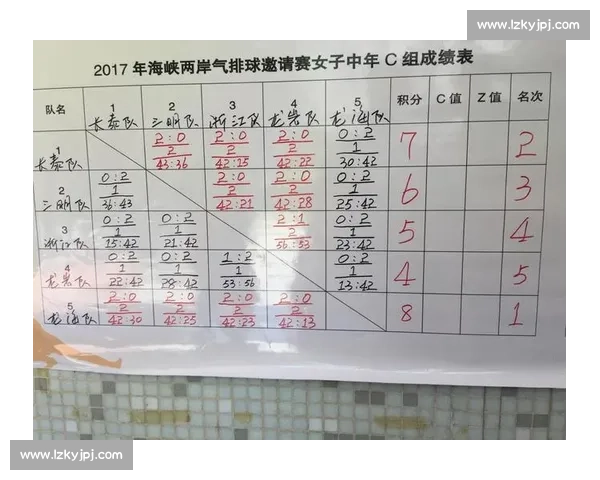 www.lzkyjpj.com
2017年海峡两岸气排球邀请赛女子中年C组成绩表
队名 1 长泰队 2 三明队 3 浙江队 4 龙岩队 5 龙海队 积分 C值 Z值 名次
1 长泰队 2:0 2 43:36 2:0 2 42:15 2:0 2 42:22 0:2 1 30:42 7 2
2 三明队 0:2 1 36:43 2:0 2 42:21 2:0 2 42:28 0:2 1 25:42 6 3
3 浙江队 0:2 1 15:42 0:2 1 21:42 2:1 2 56:53 0:2 1 23:42 5 4
4 龙岩队 0:2 1 22:42 0:2 1 28:42 1:2 1 53:56 0:2 1 13:42 4 5
5 龙海队 2:0 2 42:30 2:0 2 42:25 2:0 2 42:23 2:0 2 42:13 8 1
www.lzkyjpj.com